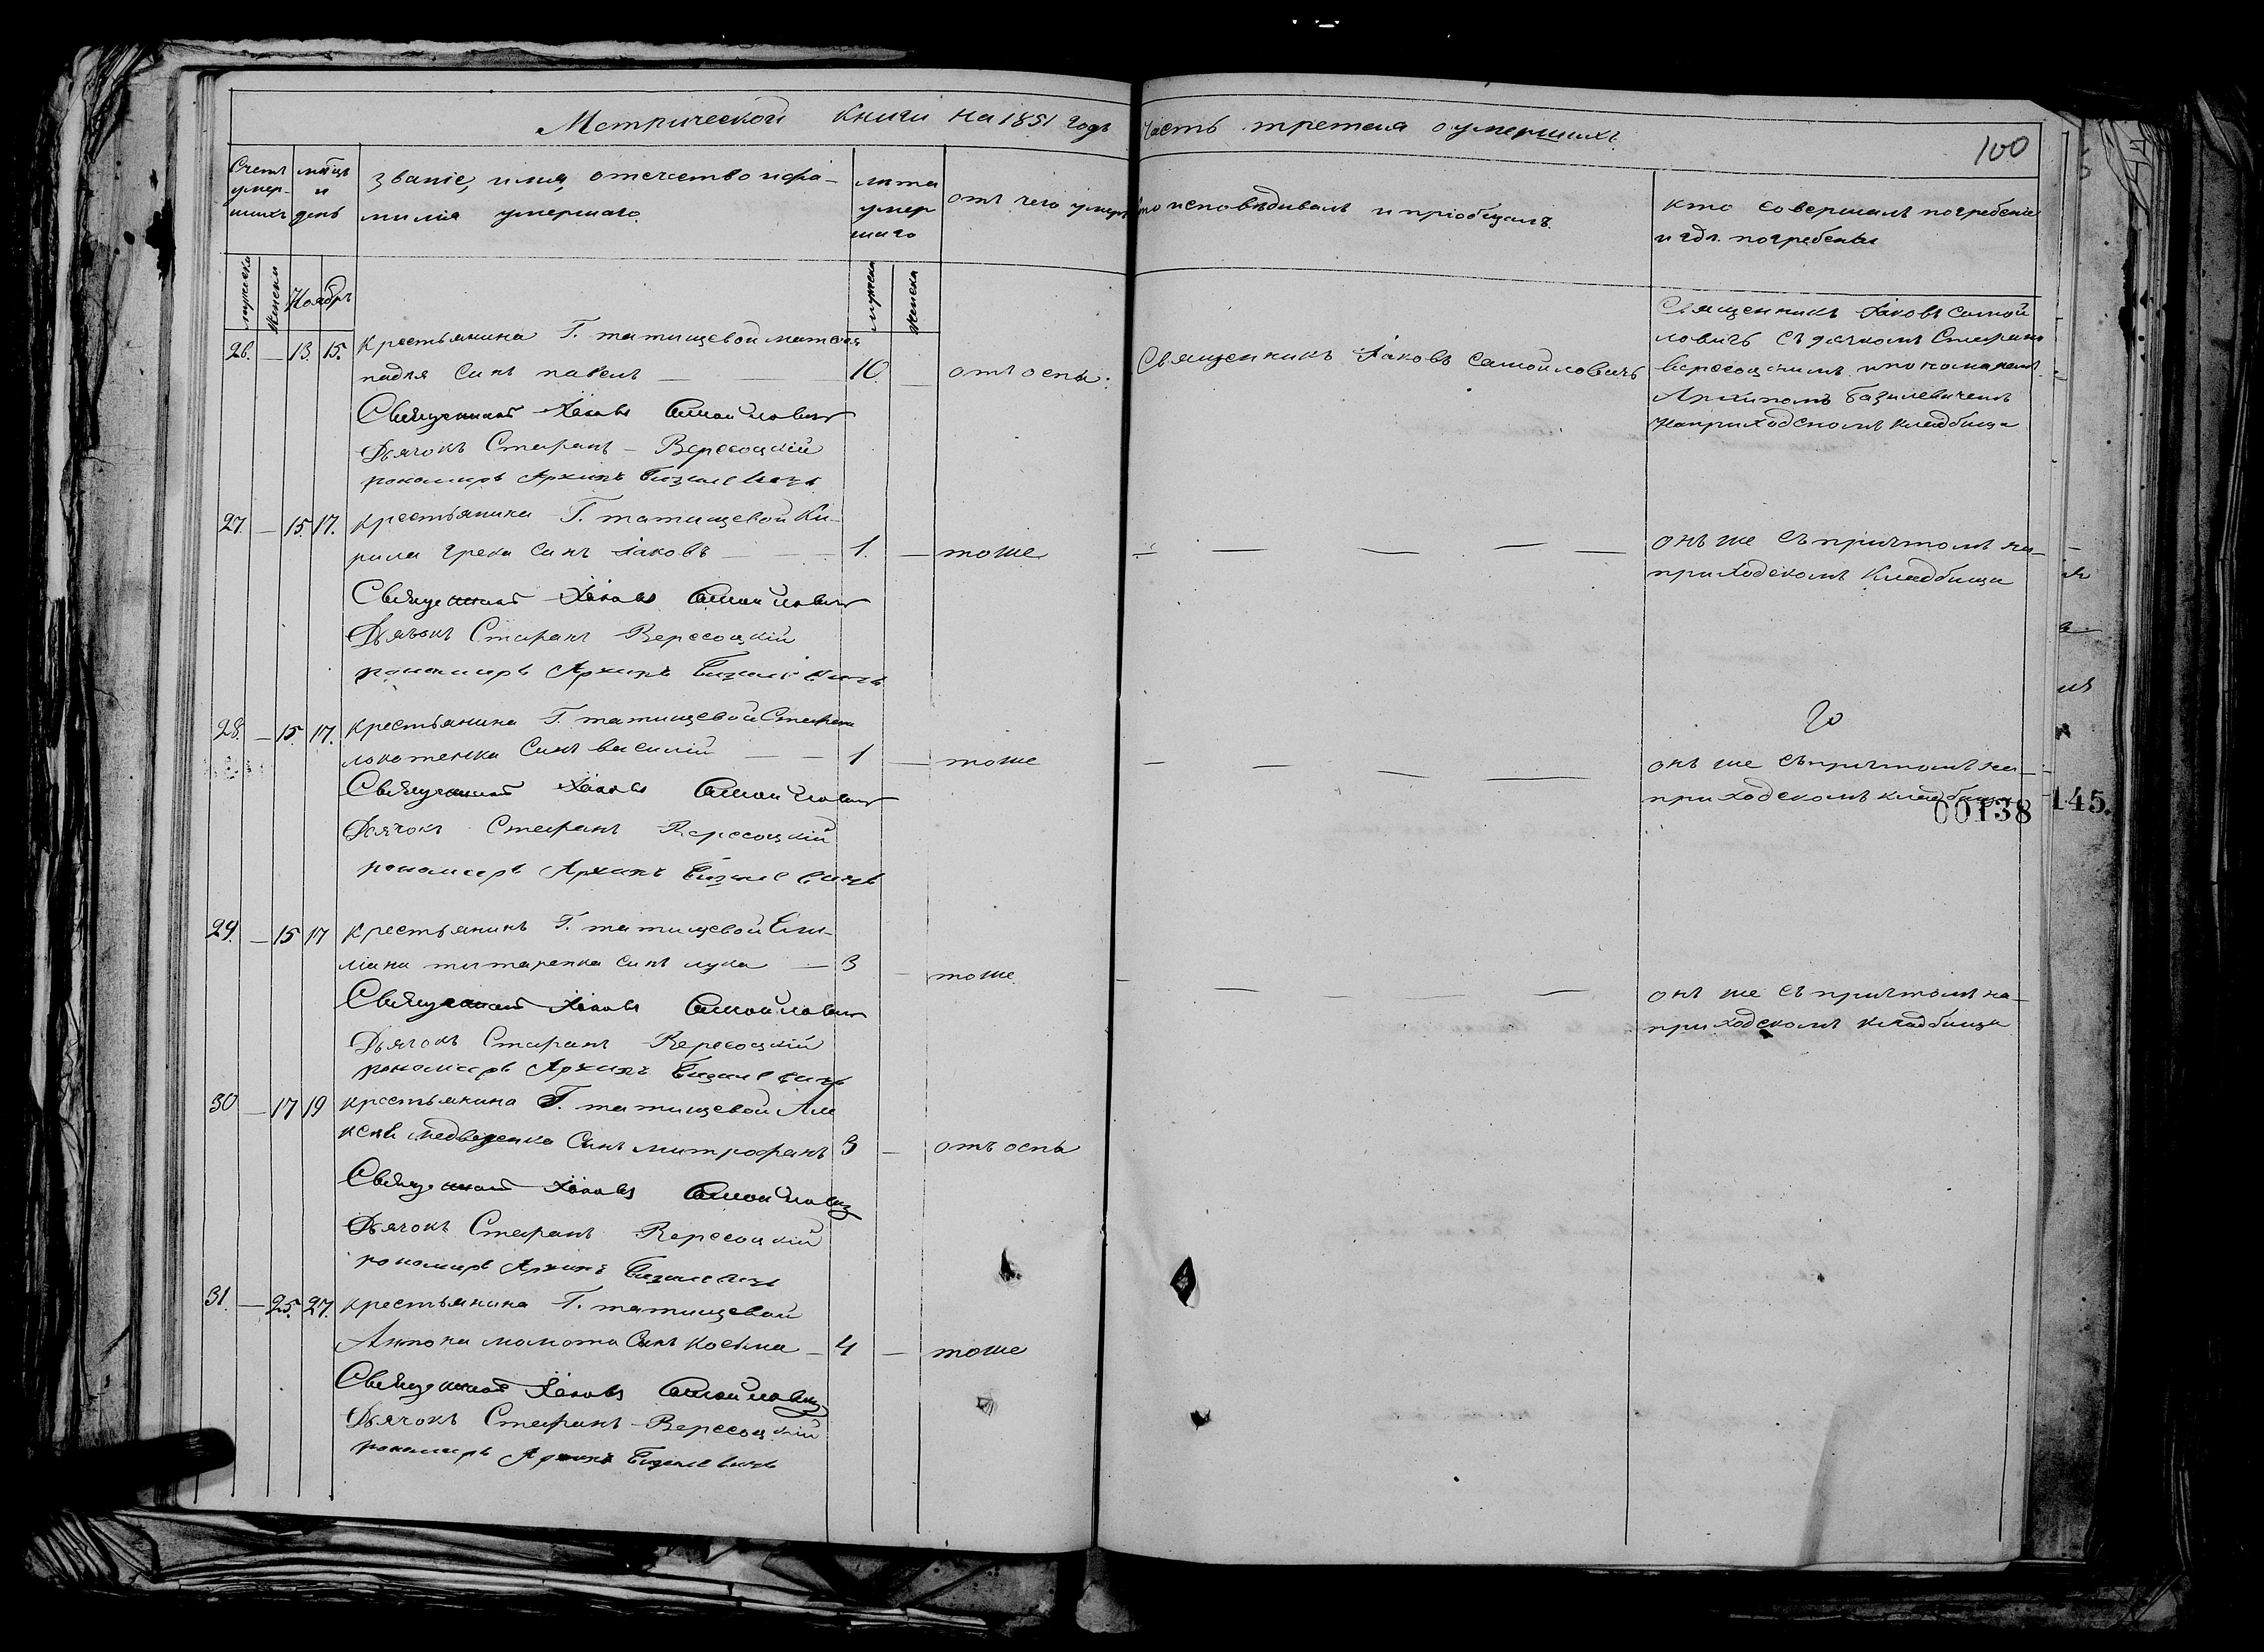 Метрической книги на 1851 годъ часть третья о умершихъ
100
Счетъ умер-шихъ
мѣсцъ и день
званіе, имя, отечество и фа-
милія умершаго.
лѣта умер шаго
отъ чего умеръ
кто исповѣдывалъ и пріобщалъ.
кто совершалъ погребеніе
и гдѣ погребены
мужеска
женска
Ноябрь
мужеска
женска
26. — 13. 15. Крестьянина Г. татищевой
сынъ павелъ — 10. — отъ оспы.
Священникъ Іаковъ Самойловичъ
Священникъ Іаковъ Самой
ловичъ съ дячкомъ Стефаномъ
вересоцкимъ и пономаремъ
Архипомъ базилевичемъ
на приходскомъ кладбищѣ
Священникъ Іаковъ Самойловичъ
Дьячокъ Стефанъ - Вересоцкій
пономарь Архипъ Базилевичъ
27. — 15. 17. крестьянина Г. татищевой Ки-
рила грека сынъ Іаковъ — 1. — тоже
онъ же съ причтомъ на-
приходскомъ кладбищѣ
Священникъ Іаковъ Самойловичъ
Дьячокъ Стефанъ Вересоцкій
пономарь Архипъ Базилевичъ
28. — 15. 17. крестьянина Г. татищевой Стефана
сынъ василій — 1 — тоже
онъ же съ причтомъ на-
приходскомъ кладбищѣ
00138
145.
Священникъ Іаковъ Самойловичъ
Дячокъ Стефанъ Вересоцкій
пономарь Архипъ Базилевичъ
29. — 15 17 крестьянинъ Г. татищевой
титаренка сынъ лука — 3 — тоже.
онъ же съ причтомъ на-
приходскомъ кладбищѣ
Священникъ Іаковъ Самойловичъ
Дьячокъ Стефанъ Вересоцкій
пономарь Архипъ Базилевичъ
30 — 17 19 крестьянина Г. татищевой Але
ксѣя медведенка Сынъ митрофанъ 3 — отъ оспы
Священникъ Іаковъ Самойловичъ
Дьячокъ Стефанъ Вересоцкій
пономарь Архипъ Базилевичъ
31. — 25. 27. крестьянина Г. татищевой
Антона Сынъ Косьма — 4 — тоже
Священникъ Іаковъ Самойловичъ
Дьячокъ Стефанъ - Вересоцкій
пономарь Архипъ Базилевичъ